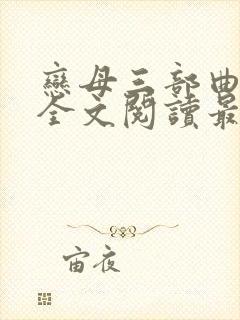 戀母三部曲
全文閱讀最
宙夜